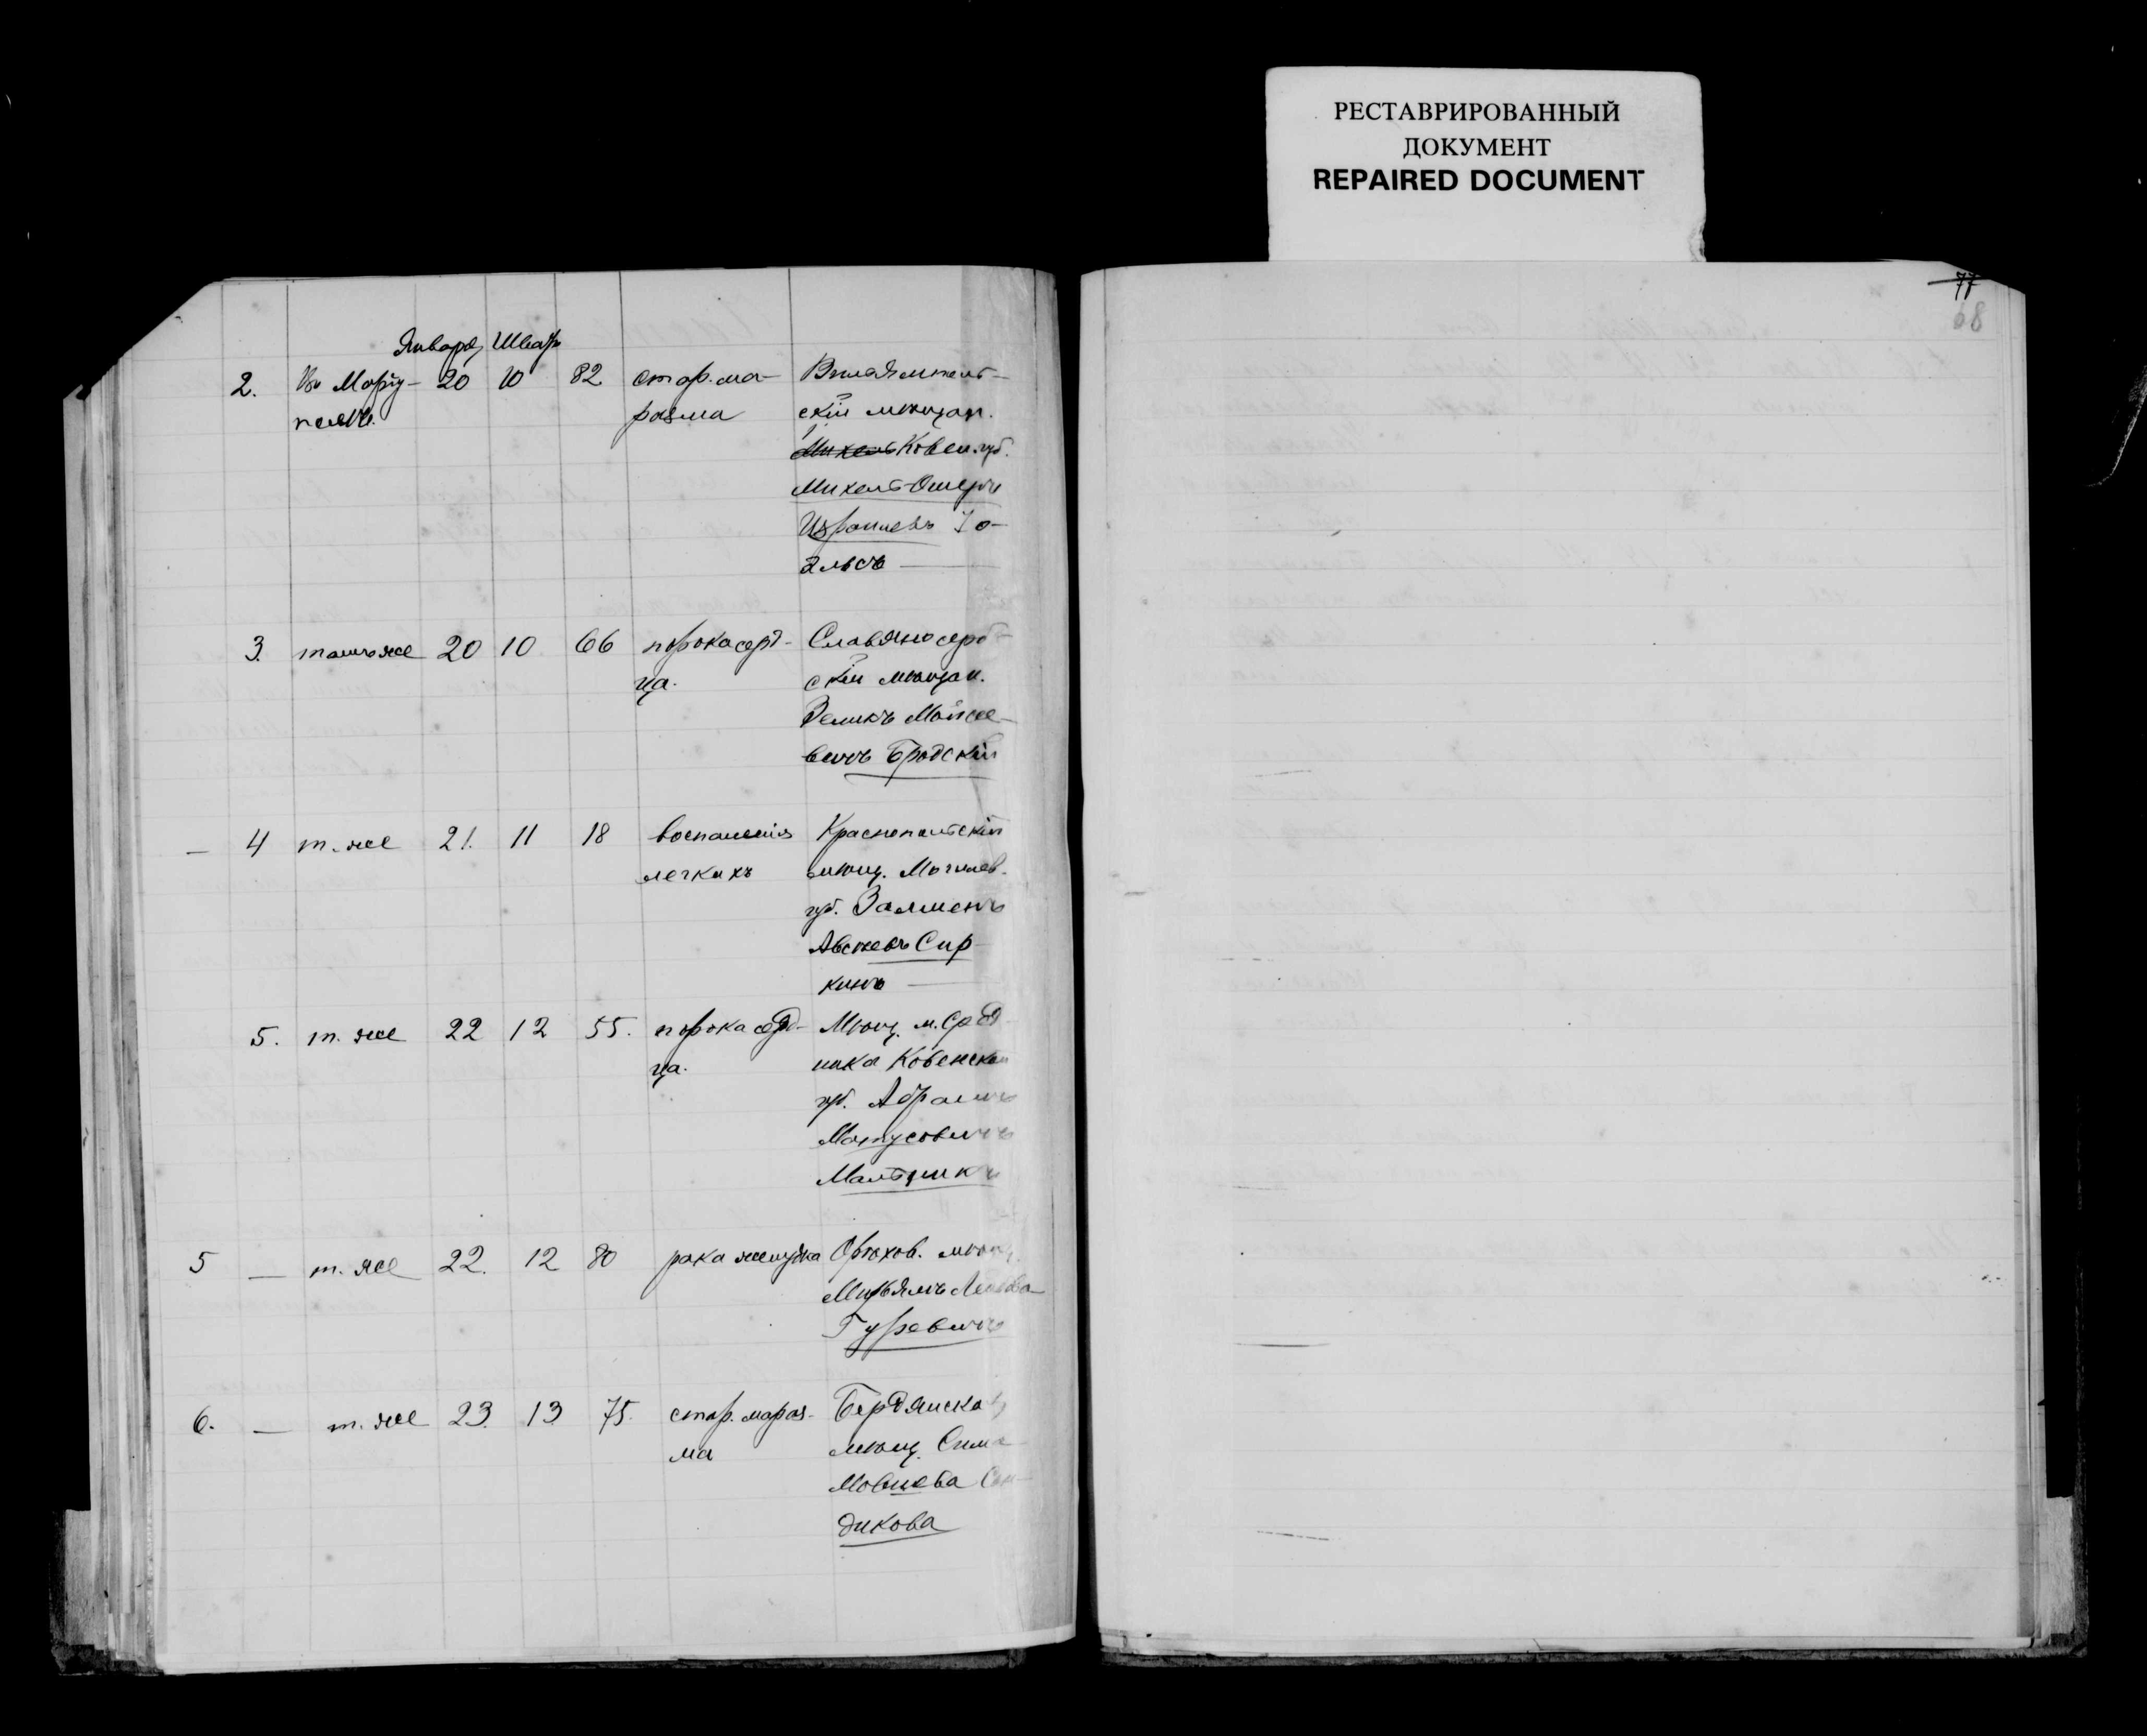 РЕСТАВРИРОВАННЫЙ
ДОКУМЕНТ
REPAIRED DOCUMENT
77
68
Января Шватъ
2. Въ Маріу- 20 10 82 стар. ма- 
полѣ. разма скій мѣщан.
Михель Ковен. губ.
Михель-Ошеръ
Израилевъ
3. тамъ же 20 10 66 порока серд- Славяносерб-
ца. скій мѣщан.
Зеликъ Мойсее-
вичъ Бродскій
— 4 т. же 21. 11 18 воспаленія Краснопольскій
легкихъ мѣщ. Могилев.
губ. Залменъ
Сир-
кинъ —
5. т. же 22 12 55. порока серд- Мѣщ. м. Сред-
ца. ника Ковенской
губ. Абрамъ
Матусовичъ
5 — т. же 22. 12 80 рака желудка Орѣхов. мѣщ.
Мирьямъ
Гуревичъ
6. — т. же 23. 13 75. стар. мараз- Бердянская
ма мѣщ. Сима
Мовшева Сан-
дикова